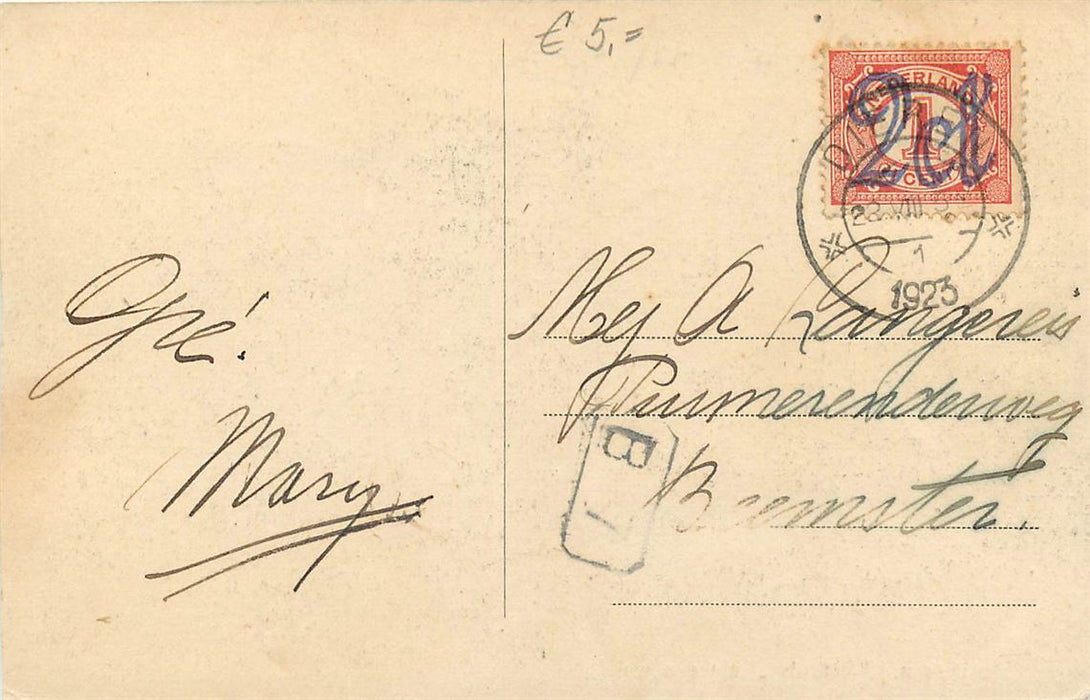 € 5,=
NEDERLAND
2 ct
1
CENT
1
1923
Gré.
Mary
Mej A Langereis
Purmerenderweg
Beemster.
B